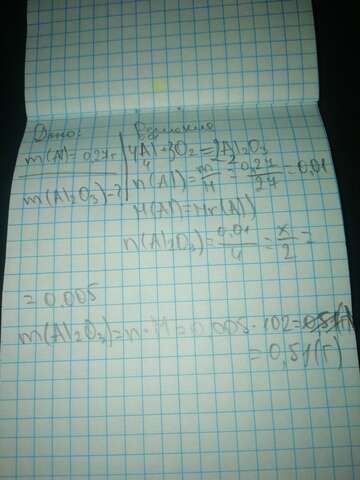 Дано:
m(Al)=0,27г
m(Al₂O₃)-?
4Al+3O₂=2Al₂O₃
n(Al)=m/M=0,27/27=0,01
M(Al)=Mr(Al)
n(Al₂O₃)=0,01/4=x/2=
=0.005
m(Al₂O₃)=n·M=0,005·102=
=0,51(г)